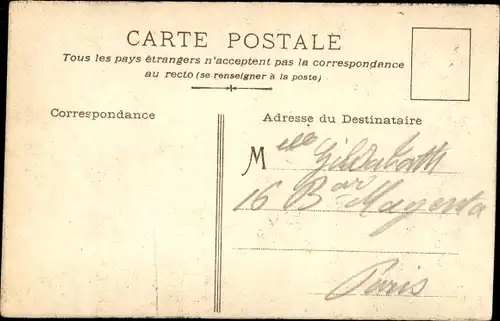 CARTE POSTALE
Tous les pays étrangers n'acceptent pas la correspondance
au recto (se renseigner à la poste)
Correspondance
Adresse du Destinataire
Melle
16 Bar Magenta
Paris